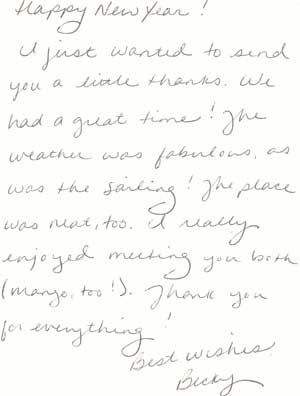 Happy New Year!
I just wanted to send
you a little thanks. We
had a great time! The
weather was fabulous, as
was the sailing! The place
was neat, too. I really
enjoyed meeting you both
(mango, too!). Thank you
for everything!
Best wishes,
Becky